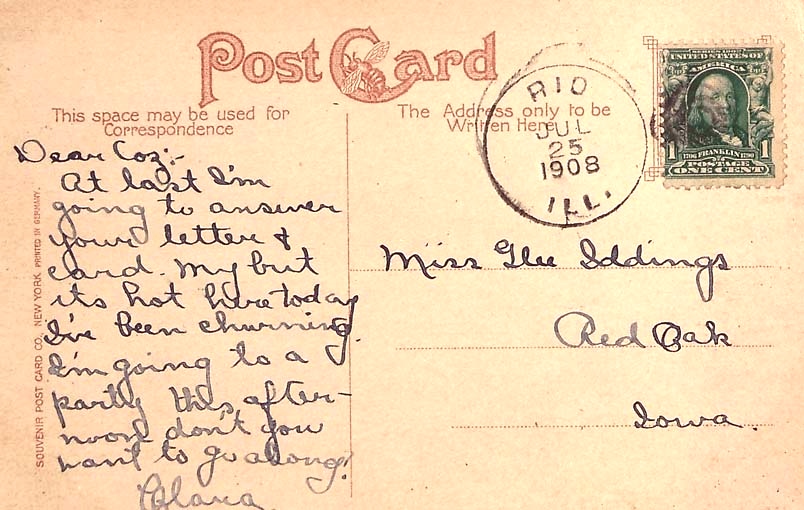 Post Card
This space may be used for
Correspondence
The Address only to be
Written Here
RIO
JUL
25
1908
ILL.
SERIES 1902
UNITED STATES OF
AMERICA
1706 FRANKLIN 1790
1 1
POSTAGE
ONE CENT
Dear Coz:-
At last I'm
going to answer
your letter &
card. My but
its hot here today
I've been churning.
I'm going to a
party this after-
noon don't you
want to go along?
Miss Glee Iddings
Red Oak
Iowa.
SOUVENIR POST CARD CO., NEW YORK PRINTED IN GERMANY.